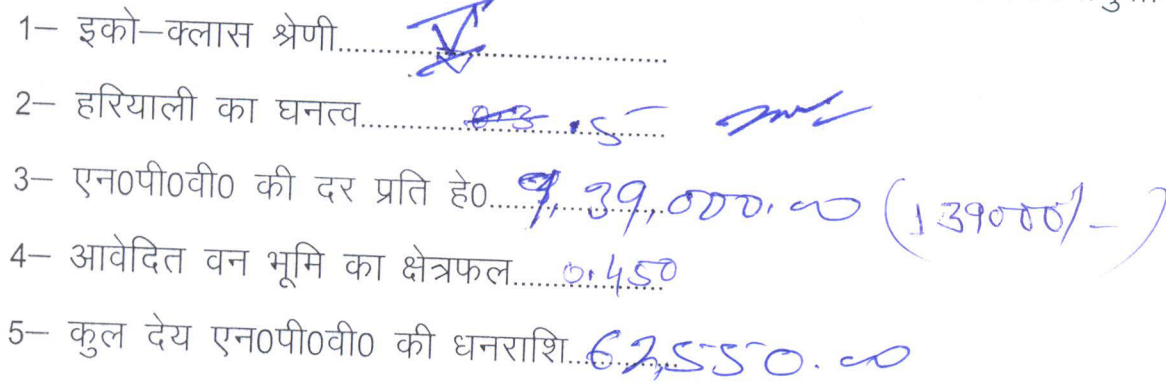 1– इको–क्लास श्रेणी.......... V
2– हरियाली का घनत्व.......... .5
3– एन0पी0वी0 की दर प्रति हे0.......... 9,39,000.00 (139000/-)
4– आवेदित वन भूमि का क्षेत्रफल.......... 0.450
5– कुल देय एन0पी0वी0 की धनराशि.......... 62,550.00